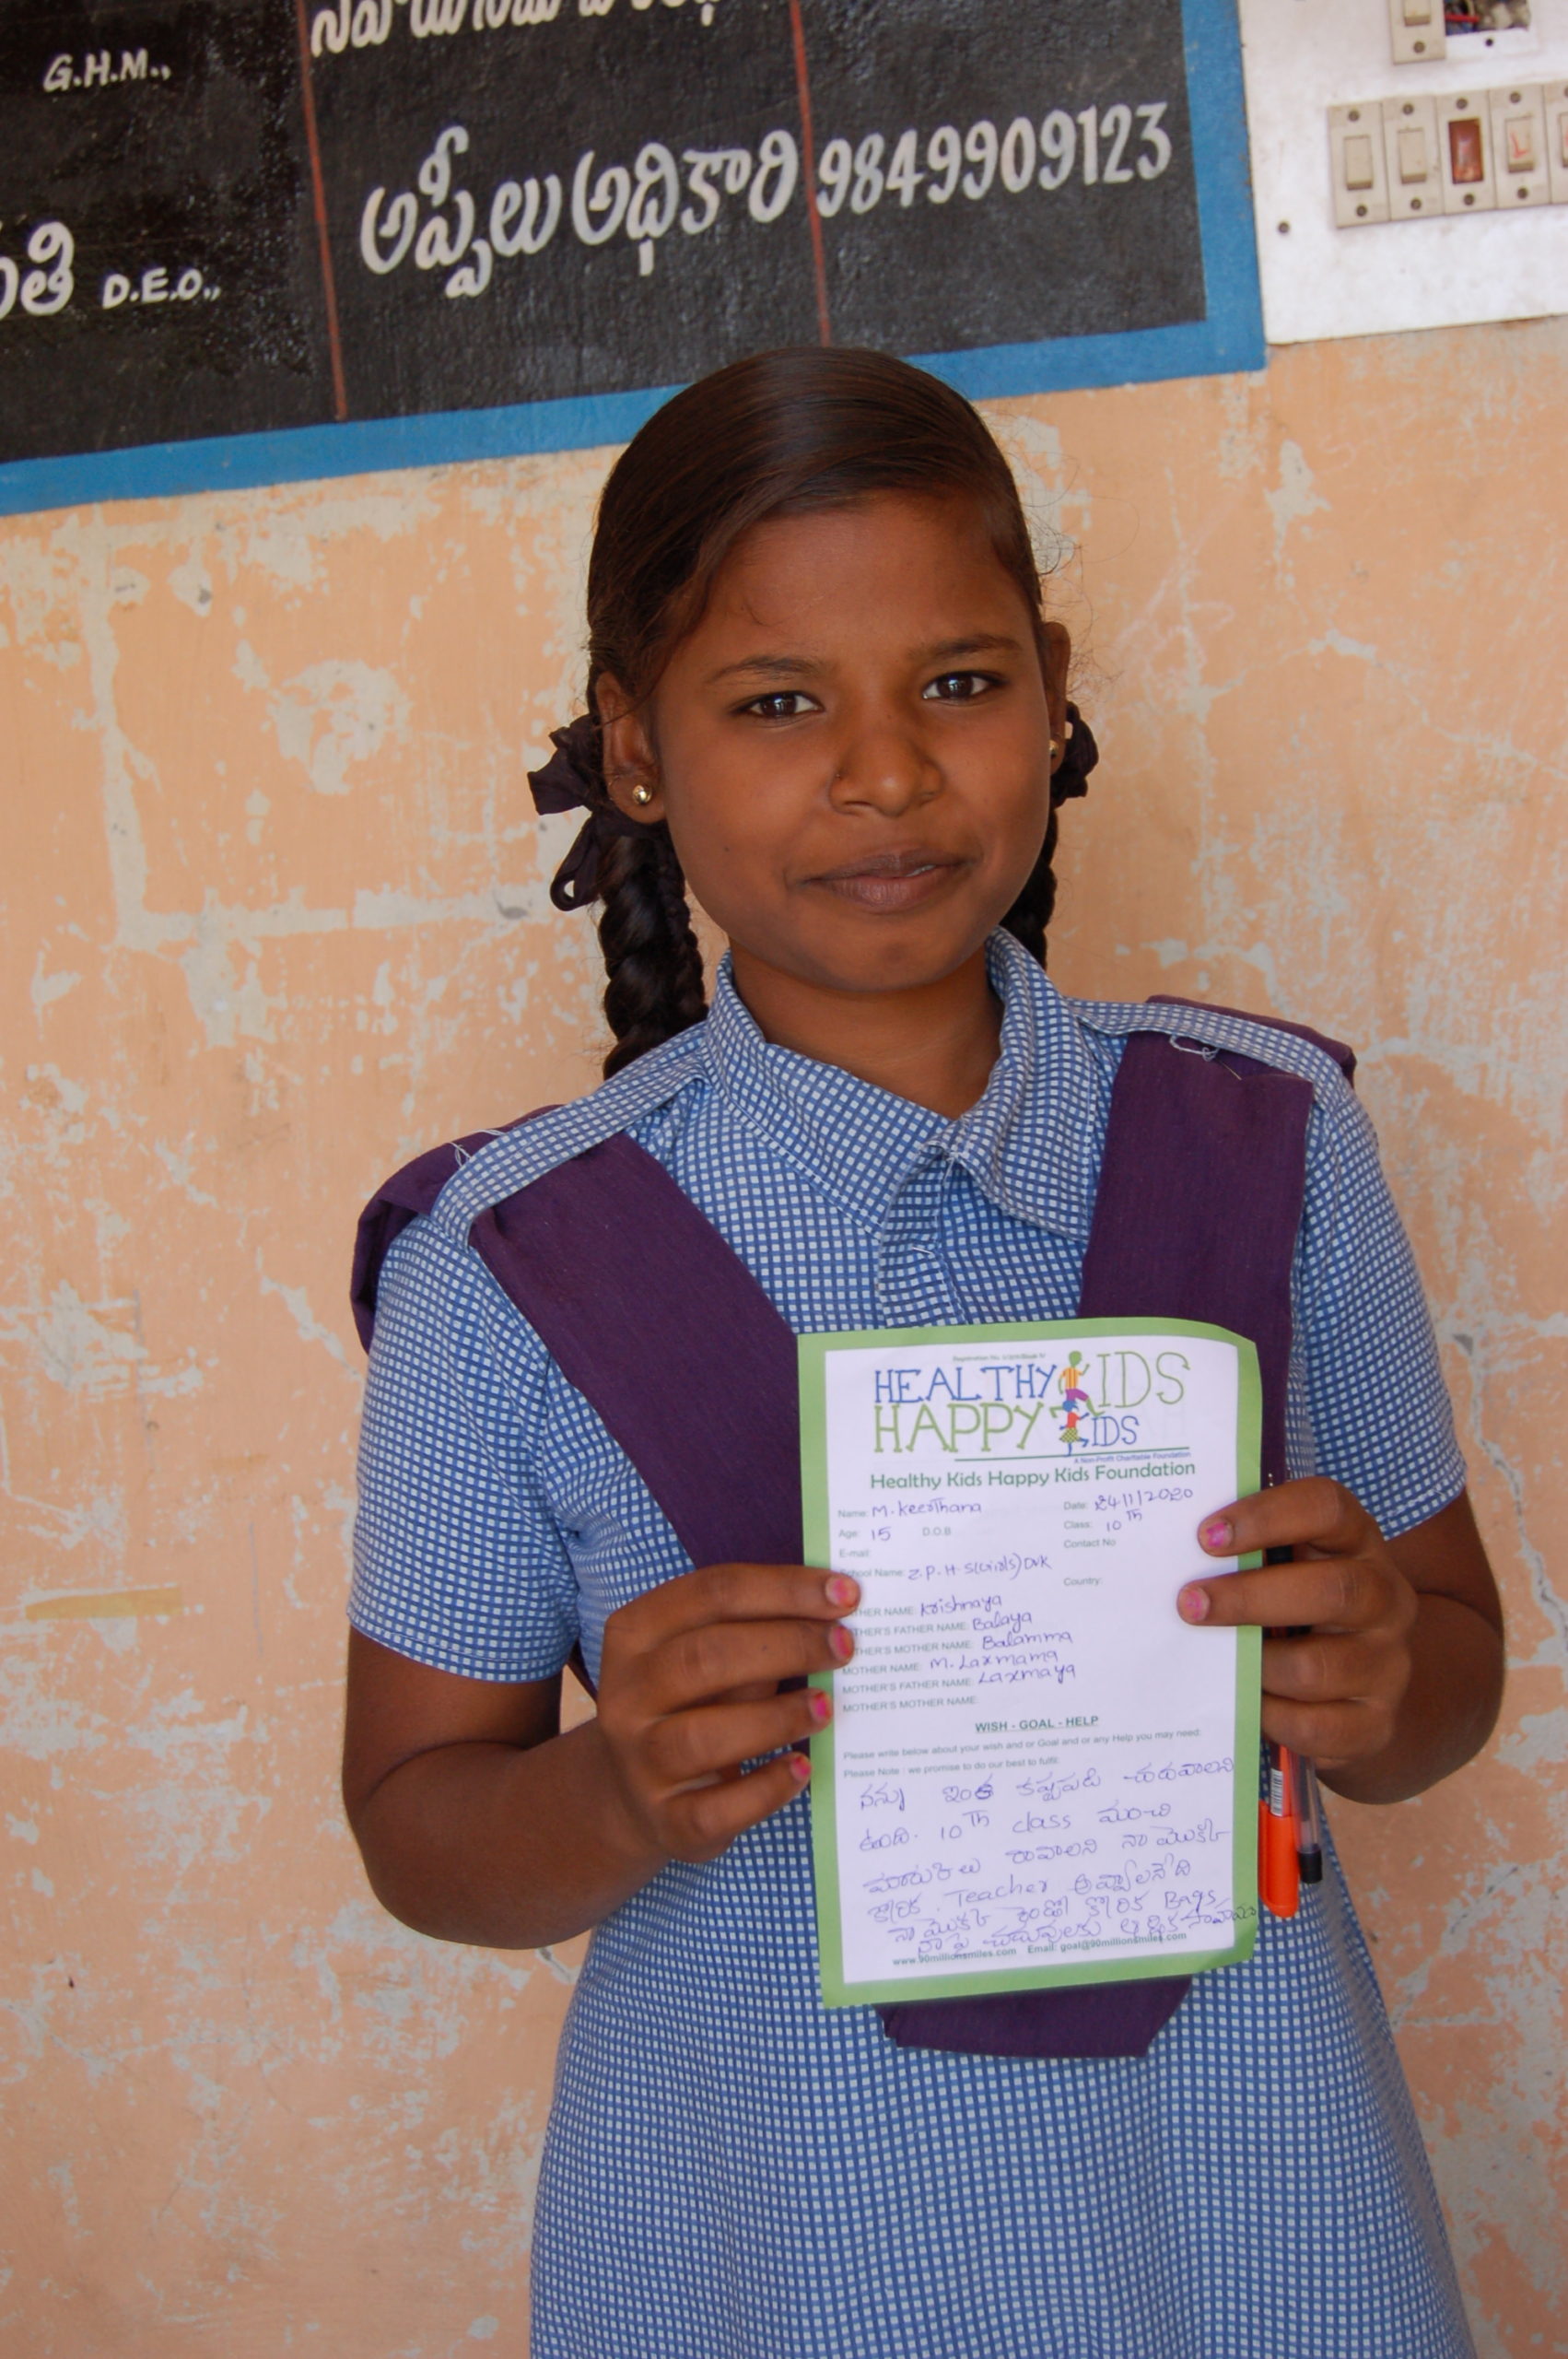 G.H.M.,
D.E.O.,
అప్పీలు అధికారి 9849909123
HEALTHY KIDS
HAPPY KIDS
A Non-Profit Charitable Foundation
Healthy Kids Happy Kids Foundation
Name: M. Keerthana Date: 24/1/2020
Age: 15 D.O.B Class: 10TH
E-mail: Contact No
School Name: Z.P.H.S(Girls) DVK
Country:
NAME: Krishnaya
FATHER NAME: Balaya
MOTHER NAME: Balamma
MOTHER NAME: M. Laxmama
MOTHER'S FATHER NAME: Laxmaya
MOTHER'S MOTHER NAME:
WISH - GOAL - HELP
Please write below about your wish and or Goal and or any Help you may need:
Please Note : we promise to do our best to fulfil:
నన్ను ఇంత కష్టపడి చదవాలని
ఉంది. 10TH class మంచి
మారుకులు రావాలని నా మొక్క
కోరిక. Teacher అవ్వాలనేది
నా మొక్క రెండో కోరిక Bags
నా పై చదువులకు ఆర్థిక సాహయం
www.90millionsmiles.com Email: goal@90millionsmiles.com